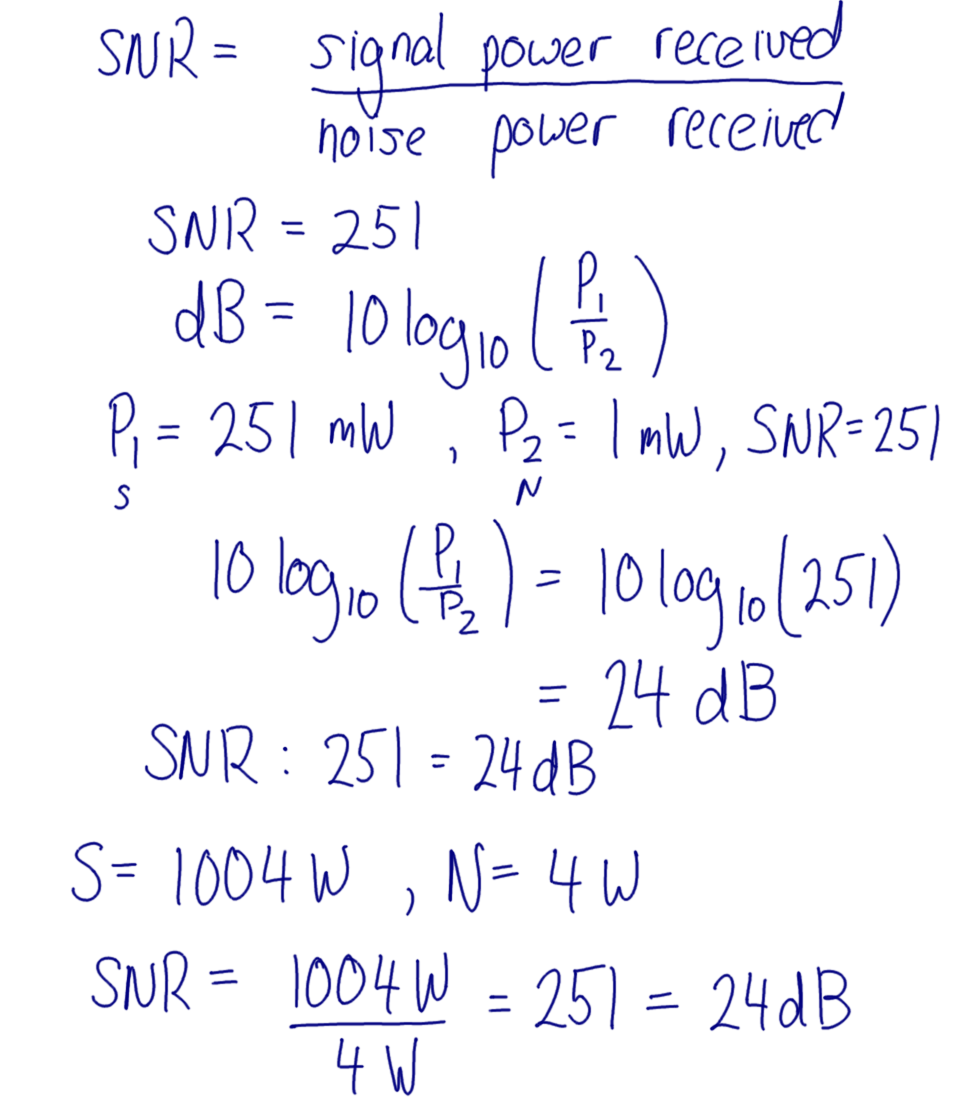 SNR = signal power received
noise power received
SNR = 251
dB = 10 log₁₀ (P₁/P₂)
P₁ = 251 mW , P₂ = 1 mW, SNR=251
S N
10 log₁₀ (P₁/P₂) = 10 log₁₀(251)
= 24 dB
SNR : 251 = 24dB
S= 1004 W , N= 4 W
SNR = 1004 W = 251 = 24dB
4 W